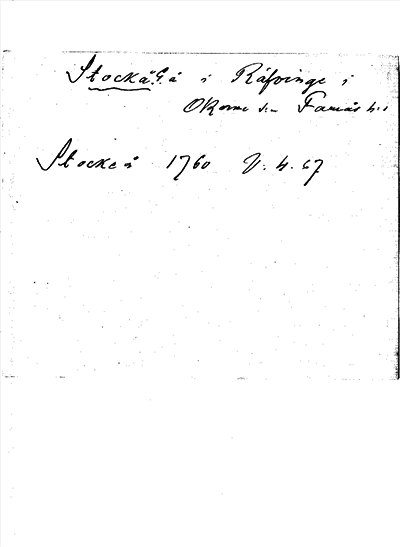 Stockå G. å i Räfvinge i
Okome sn Faurås h.d
Stockå 1760 V. 4. 67